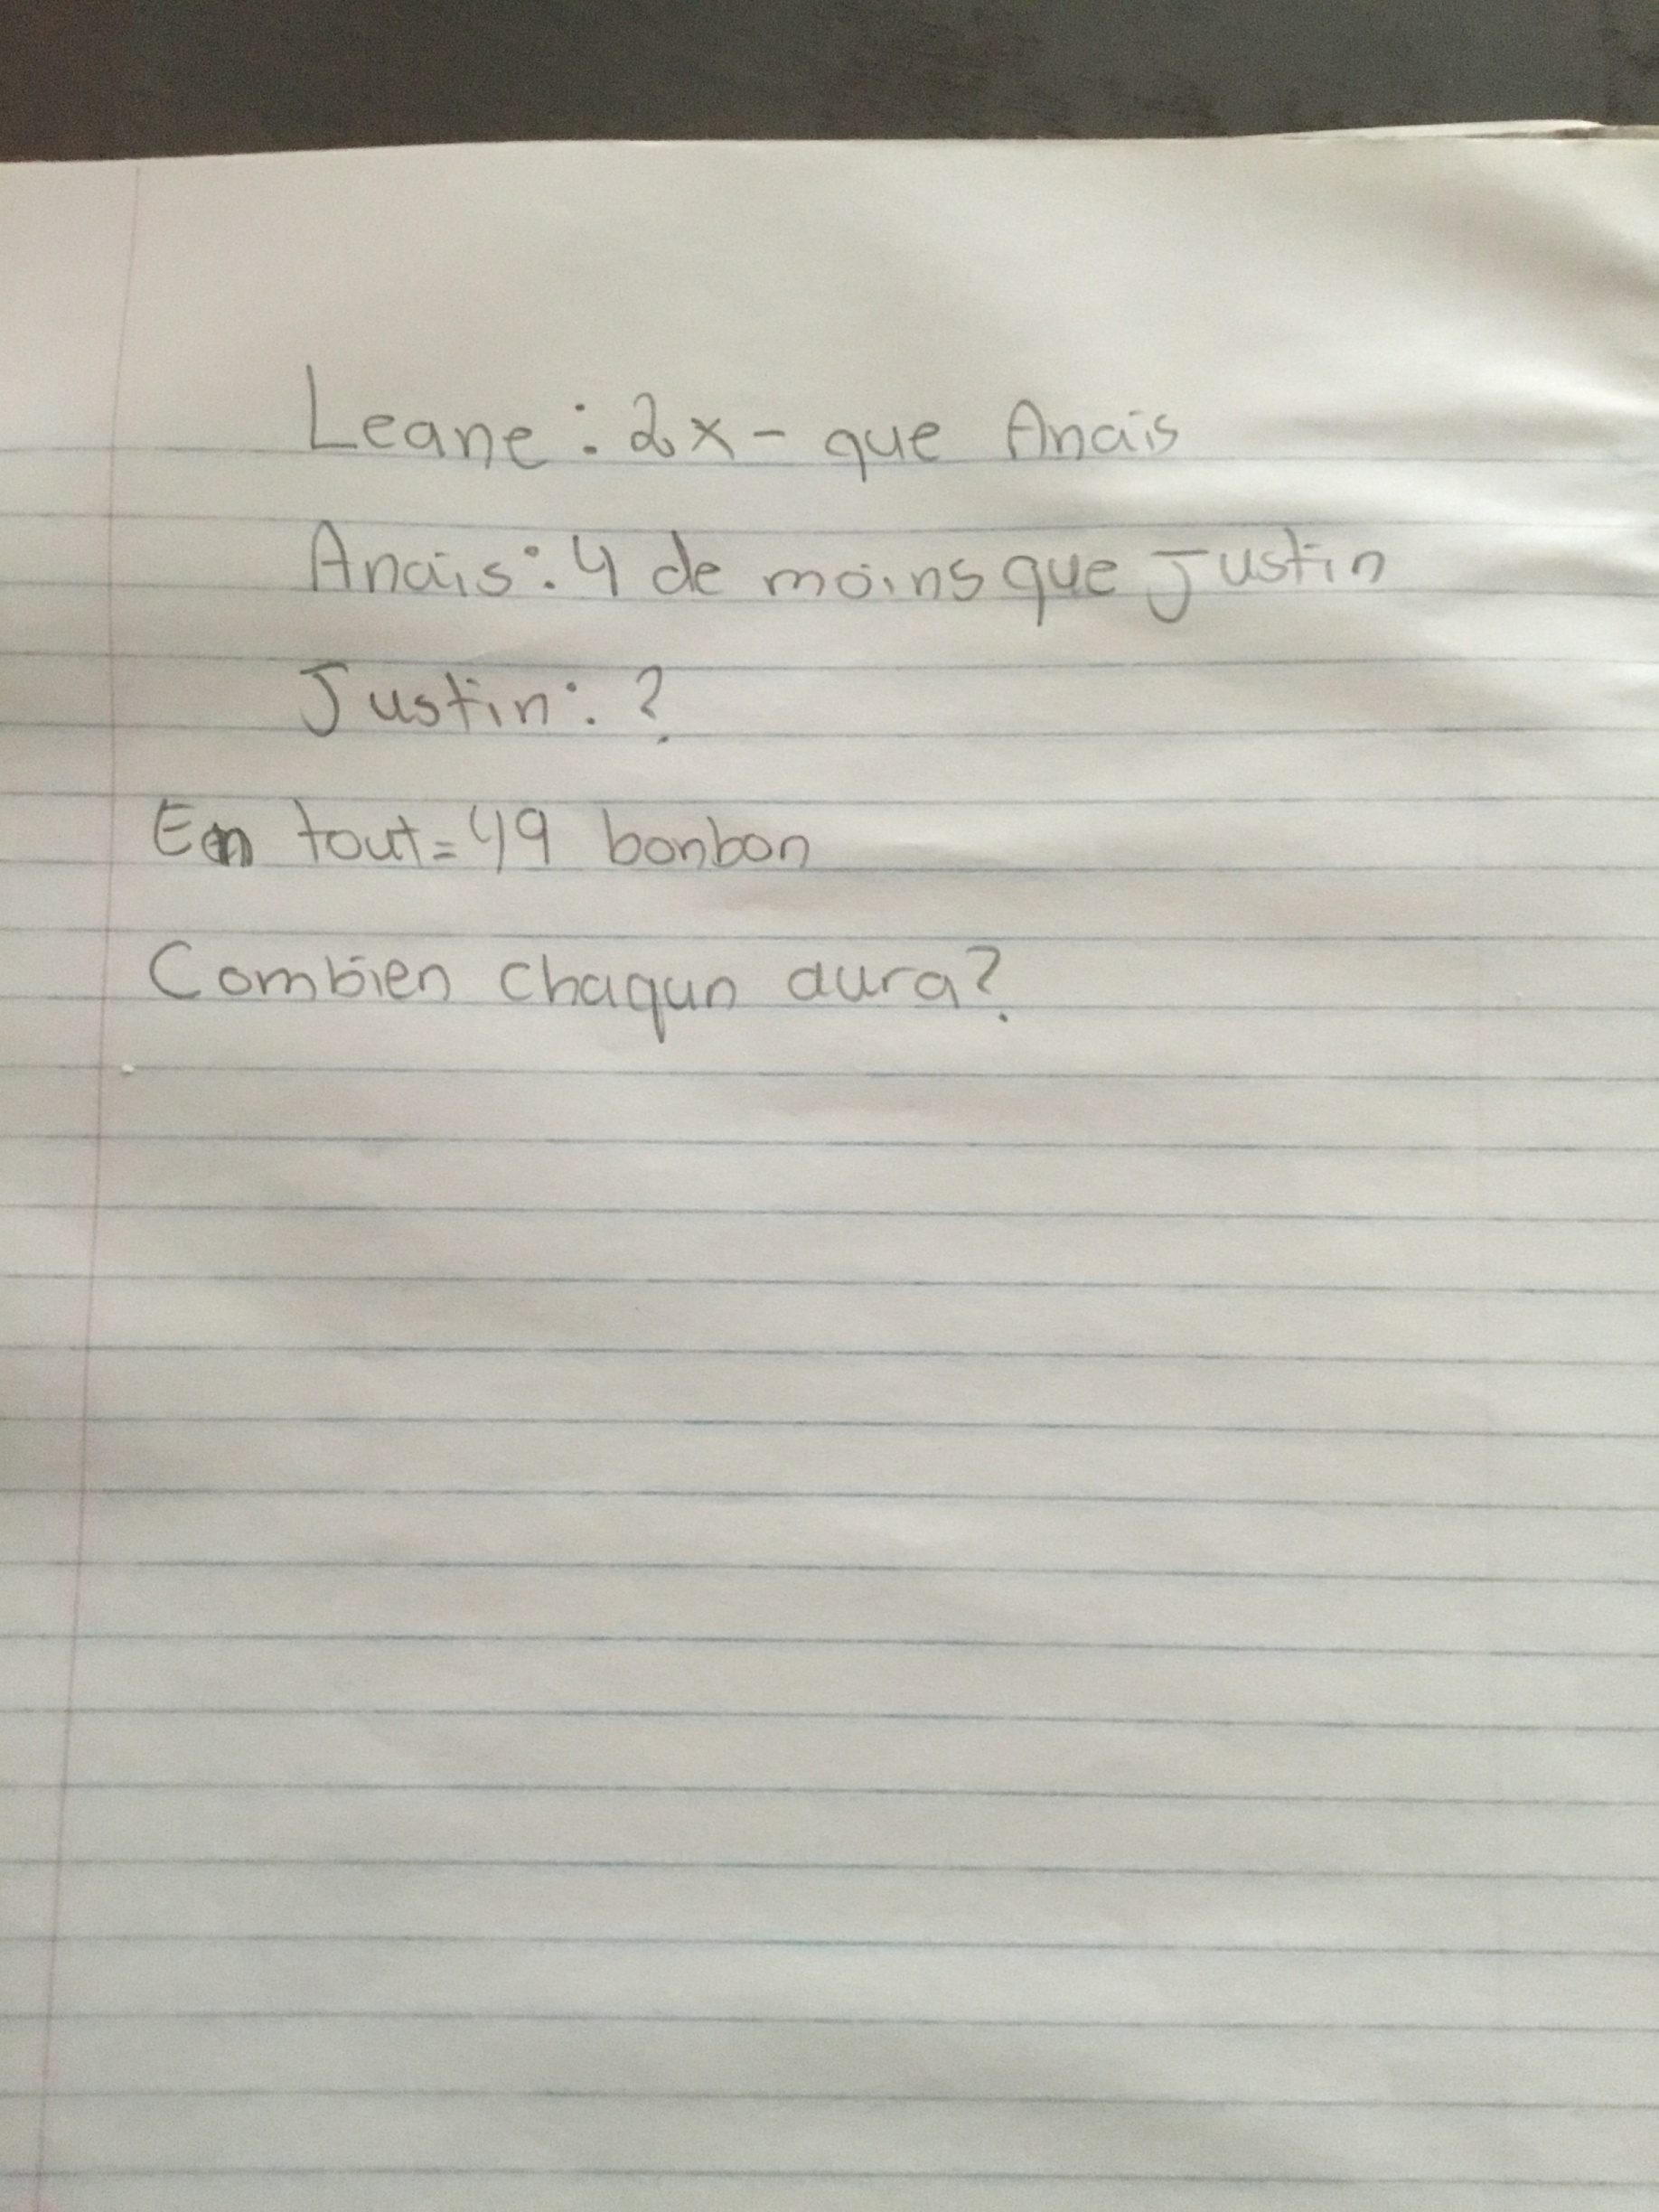 Leane : 2x - que Anais
Anais : 4 de moins que Justin
Justin : ?
En tout = 49 bonbon
Combien chaqun aura?